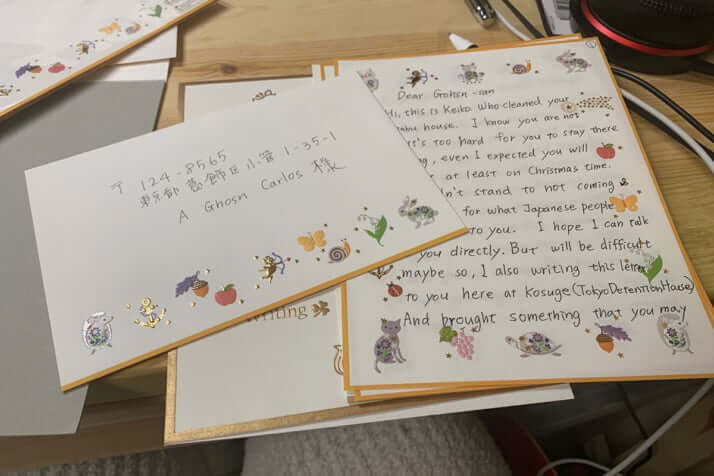 〒 124-8565
東京都 葛飾区 小菅 1-35-1
A Ghosn Carlos 様
Writing
Dear Grohsn -san
Hi, this is Keiko. Who cleaned your
house. I know you are not
too hard for you to stay there
even I expected you will
at least on Christmas time.
stand to not coming
for what Japanese people
to you. I hope I can talk
you directly. But will be difficult
maybe so, I also writing this letter
to you here at Kosuge (Tokyo Detention House)
And brought something that you may